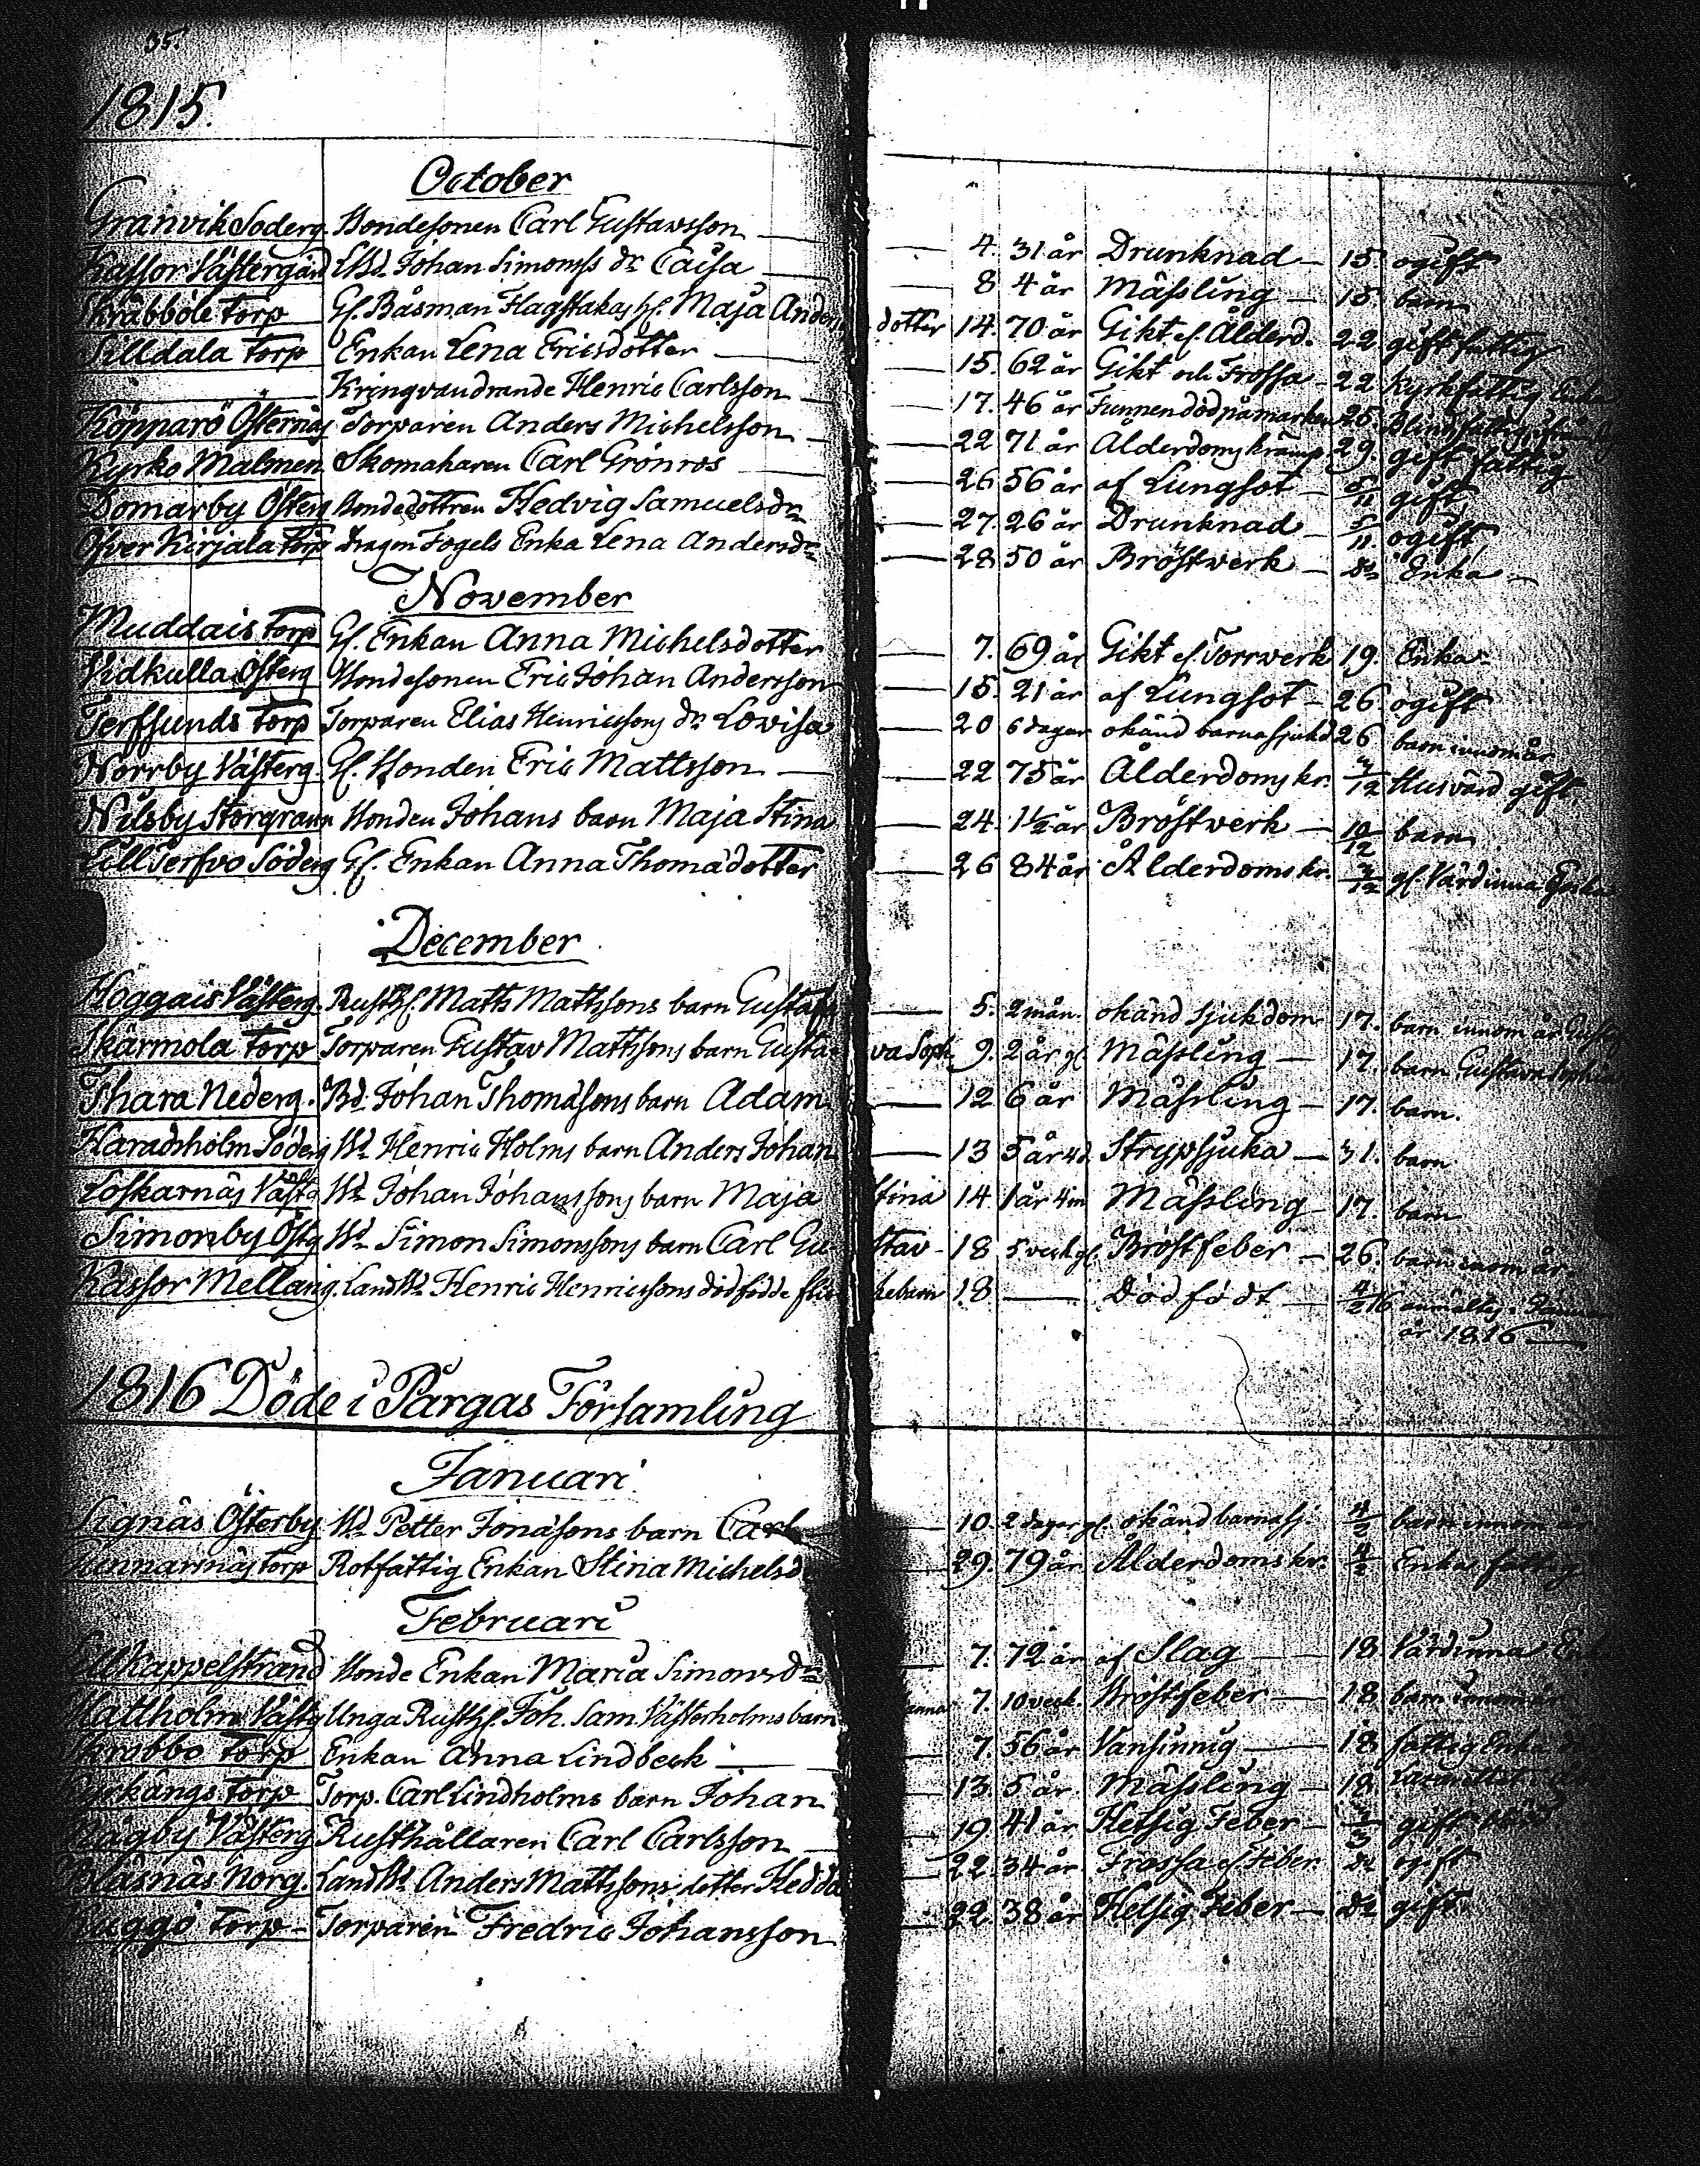 35.
1815.
October
Granvik Söderg. Bondesonen Carl Gustavsson — 4. 31 år Drunknad — 15 ogift
Kassor Västergård Bd. Johan Simonss dr. Caisa — 8 4 år Mässling — 15 barn
Skräbböle torp Gl. Båsman Flaggstakas hl. Maja Anders dotter 14. 70 år Gikt ef. Ålderd. 22 gift fattig
Lilldala torp Enkan Lena Ericsdotter — 15. 62 år Gikt och Frossa — 22 kyrkfattig Enka
Kringvandrande Henric Carlsson — 17. 46 år Funnen död på marken 25.
Kopparö Östernäs Torparen Anders Michelsson — 22 71 år Ålderdoms krämp 29. gift fattig
Kyrko Malmen Skomakaren Carl Grönros — 26 56 år af Lungsot — 5/11 gift
Domarby Österg. Bondedottren Hedvig Samuelsdr. — 27. 26 år Drunknad — 5/11. ogift
Öfver Kirjala torp Dragon Fogels Enka Lena Andersdr. — 28 50 år Bröstwerk — Do Enka —
November
Muddais torp Gl. Enkan Anna Michelsdotter — 7. 69 år Gikt ef. Torrwerk 19. Enka
Vidkulla Österg Bondesonen Eric Johan Andersson — 15. 21 år af Lungsot — 26 ogift
Terfsunds torp Torparen Elias Henricssons dr. Lovisa — 20 6 dagar okänd barnasjukd 26 barn innom år
Norrby Västerg. Gl. Bonden Eric Mattsson — 22 75 år Ålderdoms kr. 7/12 Husvärd gift.
Nilsby Storgrann Bonden Johans barn Maja Stina — 24. 1½ år Bröstverk — 10/12 barn
Lill Terfvo Söderg Gl. Enkan Anna Thomadotter — 26 84 år Ålderdoms kr. 7/12 gl. Värdinna Enka
December
Höggais Västerg. Rusth. Matts Mattssons barn Gustafva — 5. 2 mån. okänd sjukdom 17. barn innom år
Skärmola torp Torparen Gustav Mattssons barn Gusta= va Soph. 9. 2 år gl. Mässling — 17. barn Gustava Sophia
Thara Nederg. Bd. Johan Thomassons barn Adam — 12 6 år Mässling — 17. barn.
Haradsholm Söderg Bd. Henric Holms barn Anders Johan — 13 5 år Strypsjuka — 31. barn
Loskarnäs Västg Bd. Johan Johanssons barn Maja Stina 14 1 år 4 m Mässling 17. barn
Simonby Östg Bd. Simon Simonssons barn Carl Gu= stav — 18 5 veck gl. Bröstfeber — 26. barn inom år.
Kassor Mellang. Landbd. Henric Henricssons dödfödde flic kebarn 18 — Dödfödt — 4/2 16
år 1816 —
1816 Döde i Pargas Församling
Januari
Signäs Österby Bd. Petter Jonassons barn Carl — 10. 2 dagar gl. okänd barnasj. 4/2 barn innom år
Gunnarnäs torp Rotfattig Enkan Stina Michelsd — 29. 79 år Ålderdoms kr. 4/2 Enka fattig
Februari
Lillkappelstrand Bonde Enkan Maria Simonsdr. — 7. 72 år af Slag — 18 Värdinna
Mattholm Västg Unga Rusth. Joh. Sam. Västerholms barn Anna 7. 10 veck. Bröstfeber — 18. barn
Skrabbo torp Enkan Anna Lindbeck — 7. 56 år Vansinnig — 18 fattig Enka
torp Torp. Carl Lindholms barn Johan — 13. 5 år. Mässling — 18.
Västerg Rusthållaren Carl Carlsson — 19 41 år Hetsig Feber — 3/3 gift
Norg. Landbd. Anders Mattssons dotter Hedda 22. 34 år. Frossa ef. Feber. Do ogift
Kuggö torp — Torparen Fredric Johansson — 22. 38 år Hetsig Feber — Do gift.